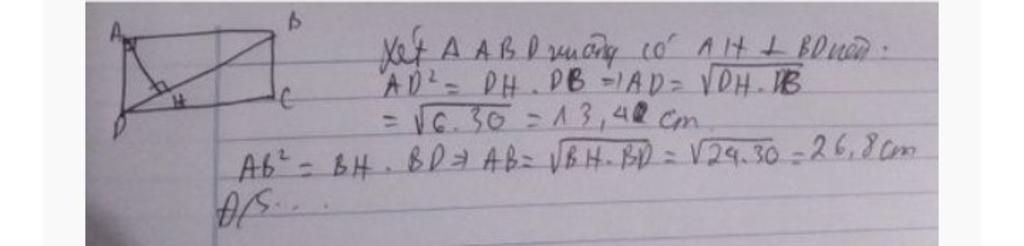 A
B
C
D
H
Xét Δ ABD vuông có AH ⊥ BD nên:
AD² = DH . DB => AD = √DH . DB
= √6.30 = 13,4 cm
AB² = BH . BD => AB = √BH . BD = √24.30 = 26,8 cm
Đ/S....